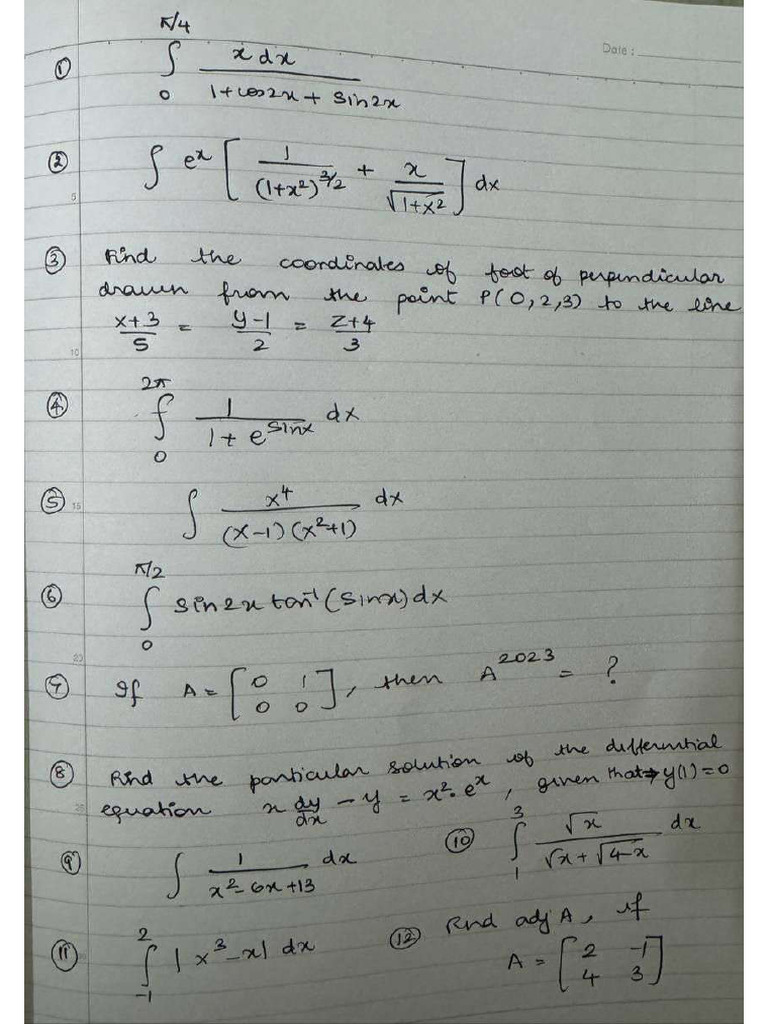 Date :
① ∫₀^(π/4) x dx / (1+cos2x + sin2x)
② ∫ eˣ [ 1/(1+x²)^(3/2) + x/√(1+x²) ] dx
③ Find the coordinates of foot of perpendicular
drawn from the point P(0,2,3) to the line
(x+3)/5 = (y-1)/2 = (z+4)/3
④ ∫₀^(2π) 1/(1+e^(sinx)) dx
⑤ ∫ x⁴/((x-1)(x²+1)) dx
⑥ ∫₀^(π/2) sin2x tan⁻¹(sinx) dx
⑦ If A = [0 1; 0 0], then A²⁰²³ = ?
⑧ Find the particular solution of the differential
equation x dy/dx - y = x².eˣ, given that y(1)=0
⑨ ∫ 1/(x²-6x+13) dx
⑩ ∫₁³ √x/(√x+√(4-x)) dx
⑪ ∫₋₁² |x³-x| dx
⑫ Find adj A, if
A = [2 -1; 4 3]
5
10
15
20
25